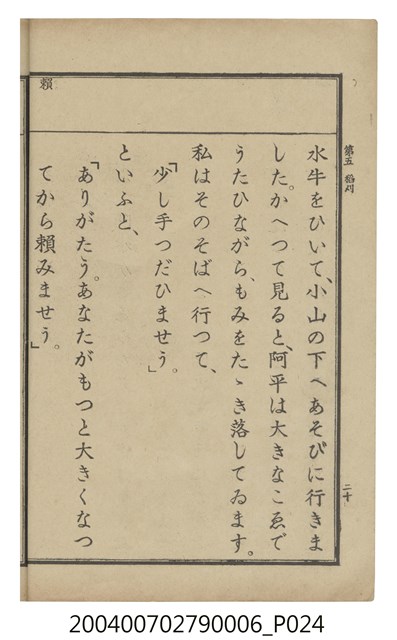 第五 稻刈
二十
水牛をひいて、小山の下へあそびに行きま
した。かへつて見ると、阿平は大きなこゑで
うたひながら、もみをたゝき落してゐます。
私はそのそばへ行つて、
「少し手つだひませう。」
といふと、
「ありがたう。あなたがもつと大きくなつ
てから賴みませう。」
賴
200400702790006_P024